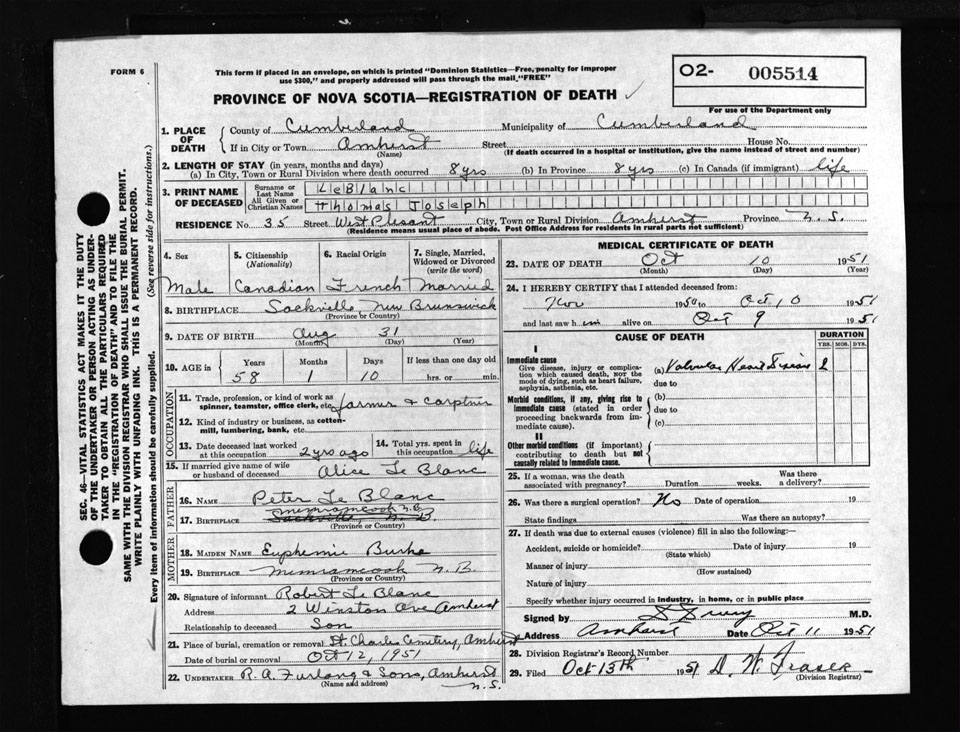 FORM 6
This form if placed in an envelope, on which is printed "Dominion Statistics—Free, penalty for improper
use $300," and properly addressed will pass through the mail "FREE"
O2- 005514
For use of the Department only
PROVINCE OF NOVA SCOTIA—REGISTRATION OF DEATH
1. PLACE OF DEATH
County of Cumberland Municipality of Cumberland
If in City or Town Amherst Street House No.
(Name) (If death occurred in a hospital or institution, give the name instead of street and number)
2. LENGTH OF STAY (in years, months and days)
(a) In City, Town or Rural Division where death occurred 8 yrs (b) In Province 8 yrs (c) In Canada (if immigrant) life
3. PRINT NAME OF DECEASED
Surname or Last Name LeBlanc
All Given or Christian Names Thomas Joseph
RESIDENCE No. 35 Street West Plesant City, Town or Rural Division Amherst Province N.S.
(Residence means usual place of abode. Post Office Address for residents in rural parts not sufficient)
SEC. 46—VITAL STATISTICS ACT MAKES IT THE DUTY
OF THE UNDERTAKER OR PERSON ACTING AS UNDER-
TAKER TO OBTAIN ALL THE PARTICULARS REQUIRED
IN THE "REGISTRATION OF DEATH" AND TO FILE THE
SAME WITH THE DIVISION REGISTRAR WHO SHALL ISSUE THE BURIAL PERMIT.
WRITE PLAINLY WITH UNFADING INK. THIS IS A PERMANENT RECORD.
Every item of information should be carefully supplied. (See reverse side for instructions.)
4. Sex 5. Citizenship (Nationality) 6. Racial Origin 7. Single, Married, Widowed or Divorced (write the word)
Male Canadian French Married
8. BIRTHPLACE Sackville, New Brunswick
(Province or Country)
9. DATE OF BIRTH Aug 31
(Month) (Day) (Year)
10. AGE in Years Months Days If less than one day old
58 1 10 hrs. or min.
OCCUPATION
11. Trade, profession, or kind of work as spinner, teamster, office clerk, etc. farmer & carptner
12. Kind of industry or business, as cotton-mill, lumbering, bank, etc.
13. Date deceased last worked at this occupation 2 yrs ago 14. Total yrs. spent in this occupation life
15. If married give name of wife or husband of deceased Alice Le Blanc
FATHER
16. NAME Peter Le Blanc
Memramcook N.B.
17. BIRTHPLACE Sackville, N.B.
(Province or Country)
MOTHER
18. MAIDEN NAME Euphemie Burke
19. BIRTHPLACE Memramcook N.B.
(Province or Country)
20. Signature of informant Robert Le Blanc
Address 2 Winston Ave Amherst
Relationship to deceased Son
21. Place of burial, cremation or removal St. Charles Cemetery, Amherst
Date of burial or removal Oct 12, 1951
22. UNDERTAKER R. A. Furlong & Sons, Amherst
(Name and address) N.S.
MEDICAL CERTIFICATE OF DEATH
23. DATE OF DEATH Oct 10 1951
(Month) (Day) (Year)
24. I HEREBY CERTIFY that I attended deceased from:
Nov 1950 to Oct 10 1951
and last saw him alive on Oct 9 1951
CAUSE OF DEATH DURATION
YRS. MOS. DYS.
I
Immediate cause
Give disease, injury or complica-
tion which caused death, NOT the
mode of dying, such as heart failure,
asphyxia, asthenia, etc.
(a) Valvular Heart Disease
due to
Morbid conditions, if any, giving rise to
immediate cause (stated in order
proceeding backwards from im-
mediate cause).
(b)
due to
(c)
II
Other morbid conditions (if important)
contributing to death but not
causally related to immediate cause.
25. If a woman, was the death associated with pregnancy? Duration weeks. Was there a delivery?
26. Was there a surgical operation? No Date of operation 19
State findings Was there an autopsy?
27. If death was due to external causes (violence) fill in also the following:—
Accident, suicide or homicide? Date of injury 19
(State which)
Manner of injury
(How sustained)
Nature of injury
Specify whether injury occurred in industry, in home, or in public place
Signed by M.D.
Address Amherst Date Oct 11 1951
28. Division Registrar's Record Number
29. Filed Oct 13th 1951 D. W. Fraser
(Division Registrar)